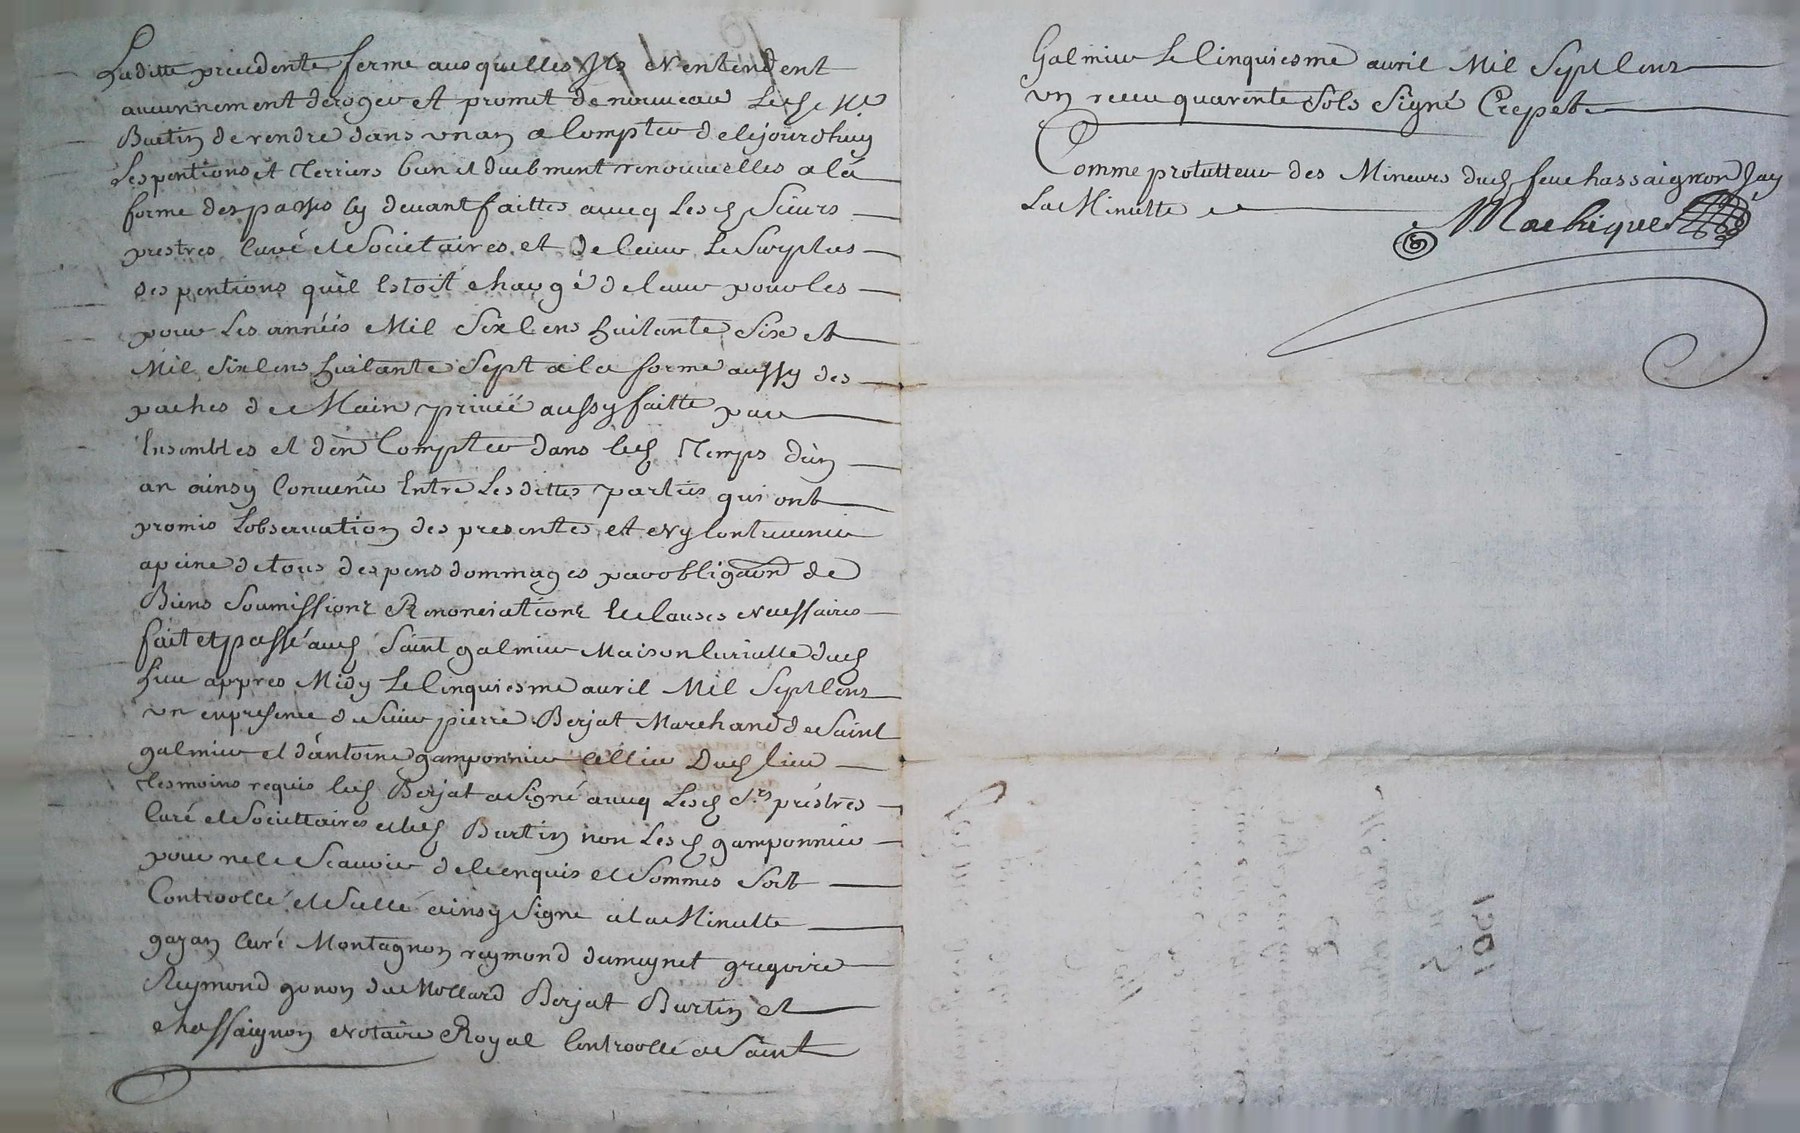 Laditte precedente ferme ausquelles Ils N'entendent
aucunnement deroger et promet de nouveau Led Me
Burtin de rendre dans un an a Compter de Cejourdhuy
Les pentions et Terriers bien et duebment renouvelles a la
forme des pasches Cy devant faittes avecq Lesd Sieurs
prestres Curé et Societaires et de lever Le Surplus
des pentions quil Estoit chargé de lever pour les
pour Les années Mil Six Cens huitante Six et
Mil Six Cens huitante Sept a la forme aussy des
paches de Main privée aussy faitte par
Ensembles et d'en Compter dans led Temps d'un
an ainsy Convenu Entre Lesdittes parties qui ont
promis L'observation des presentes et N'y Contrevenir
a peine de tous despens dommages par obligaõn de
Biens Soumissions Renonciations et Clauses Necessaires
fait et passé aud Saint galmier Maison Curialle dud
Lieu appres Midy Le Cinquiesme avril Mil Sept Cens
un en presence de Sieur pierre Berjat Marchand de Saint
galmier et d'antoine gamponnier Cellier Dud lieu
tesmoins requis led Berjat a Signé avecq Lesd Srs prestres
Curé et Societtaires et led Burtin non Led gamponnier
pour ne le Scavoir de Ce enquis et Sommés Soit
Controollé et Sellé ainsy Signé a la Minutte
gazan Curé Montagnon reymond dumeynet gregoire
Reymond gonon du Mollard Berjat Burtin et
chassaignon Notaire Royal Controollé a Saint
Galmier Le Cinquiesme avril Mil Sept Cens
un receu quarente Sols Signé Crepet
Comme protutteur des Mineurs dud feu chassaignon Jay
La Minutte
1701